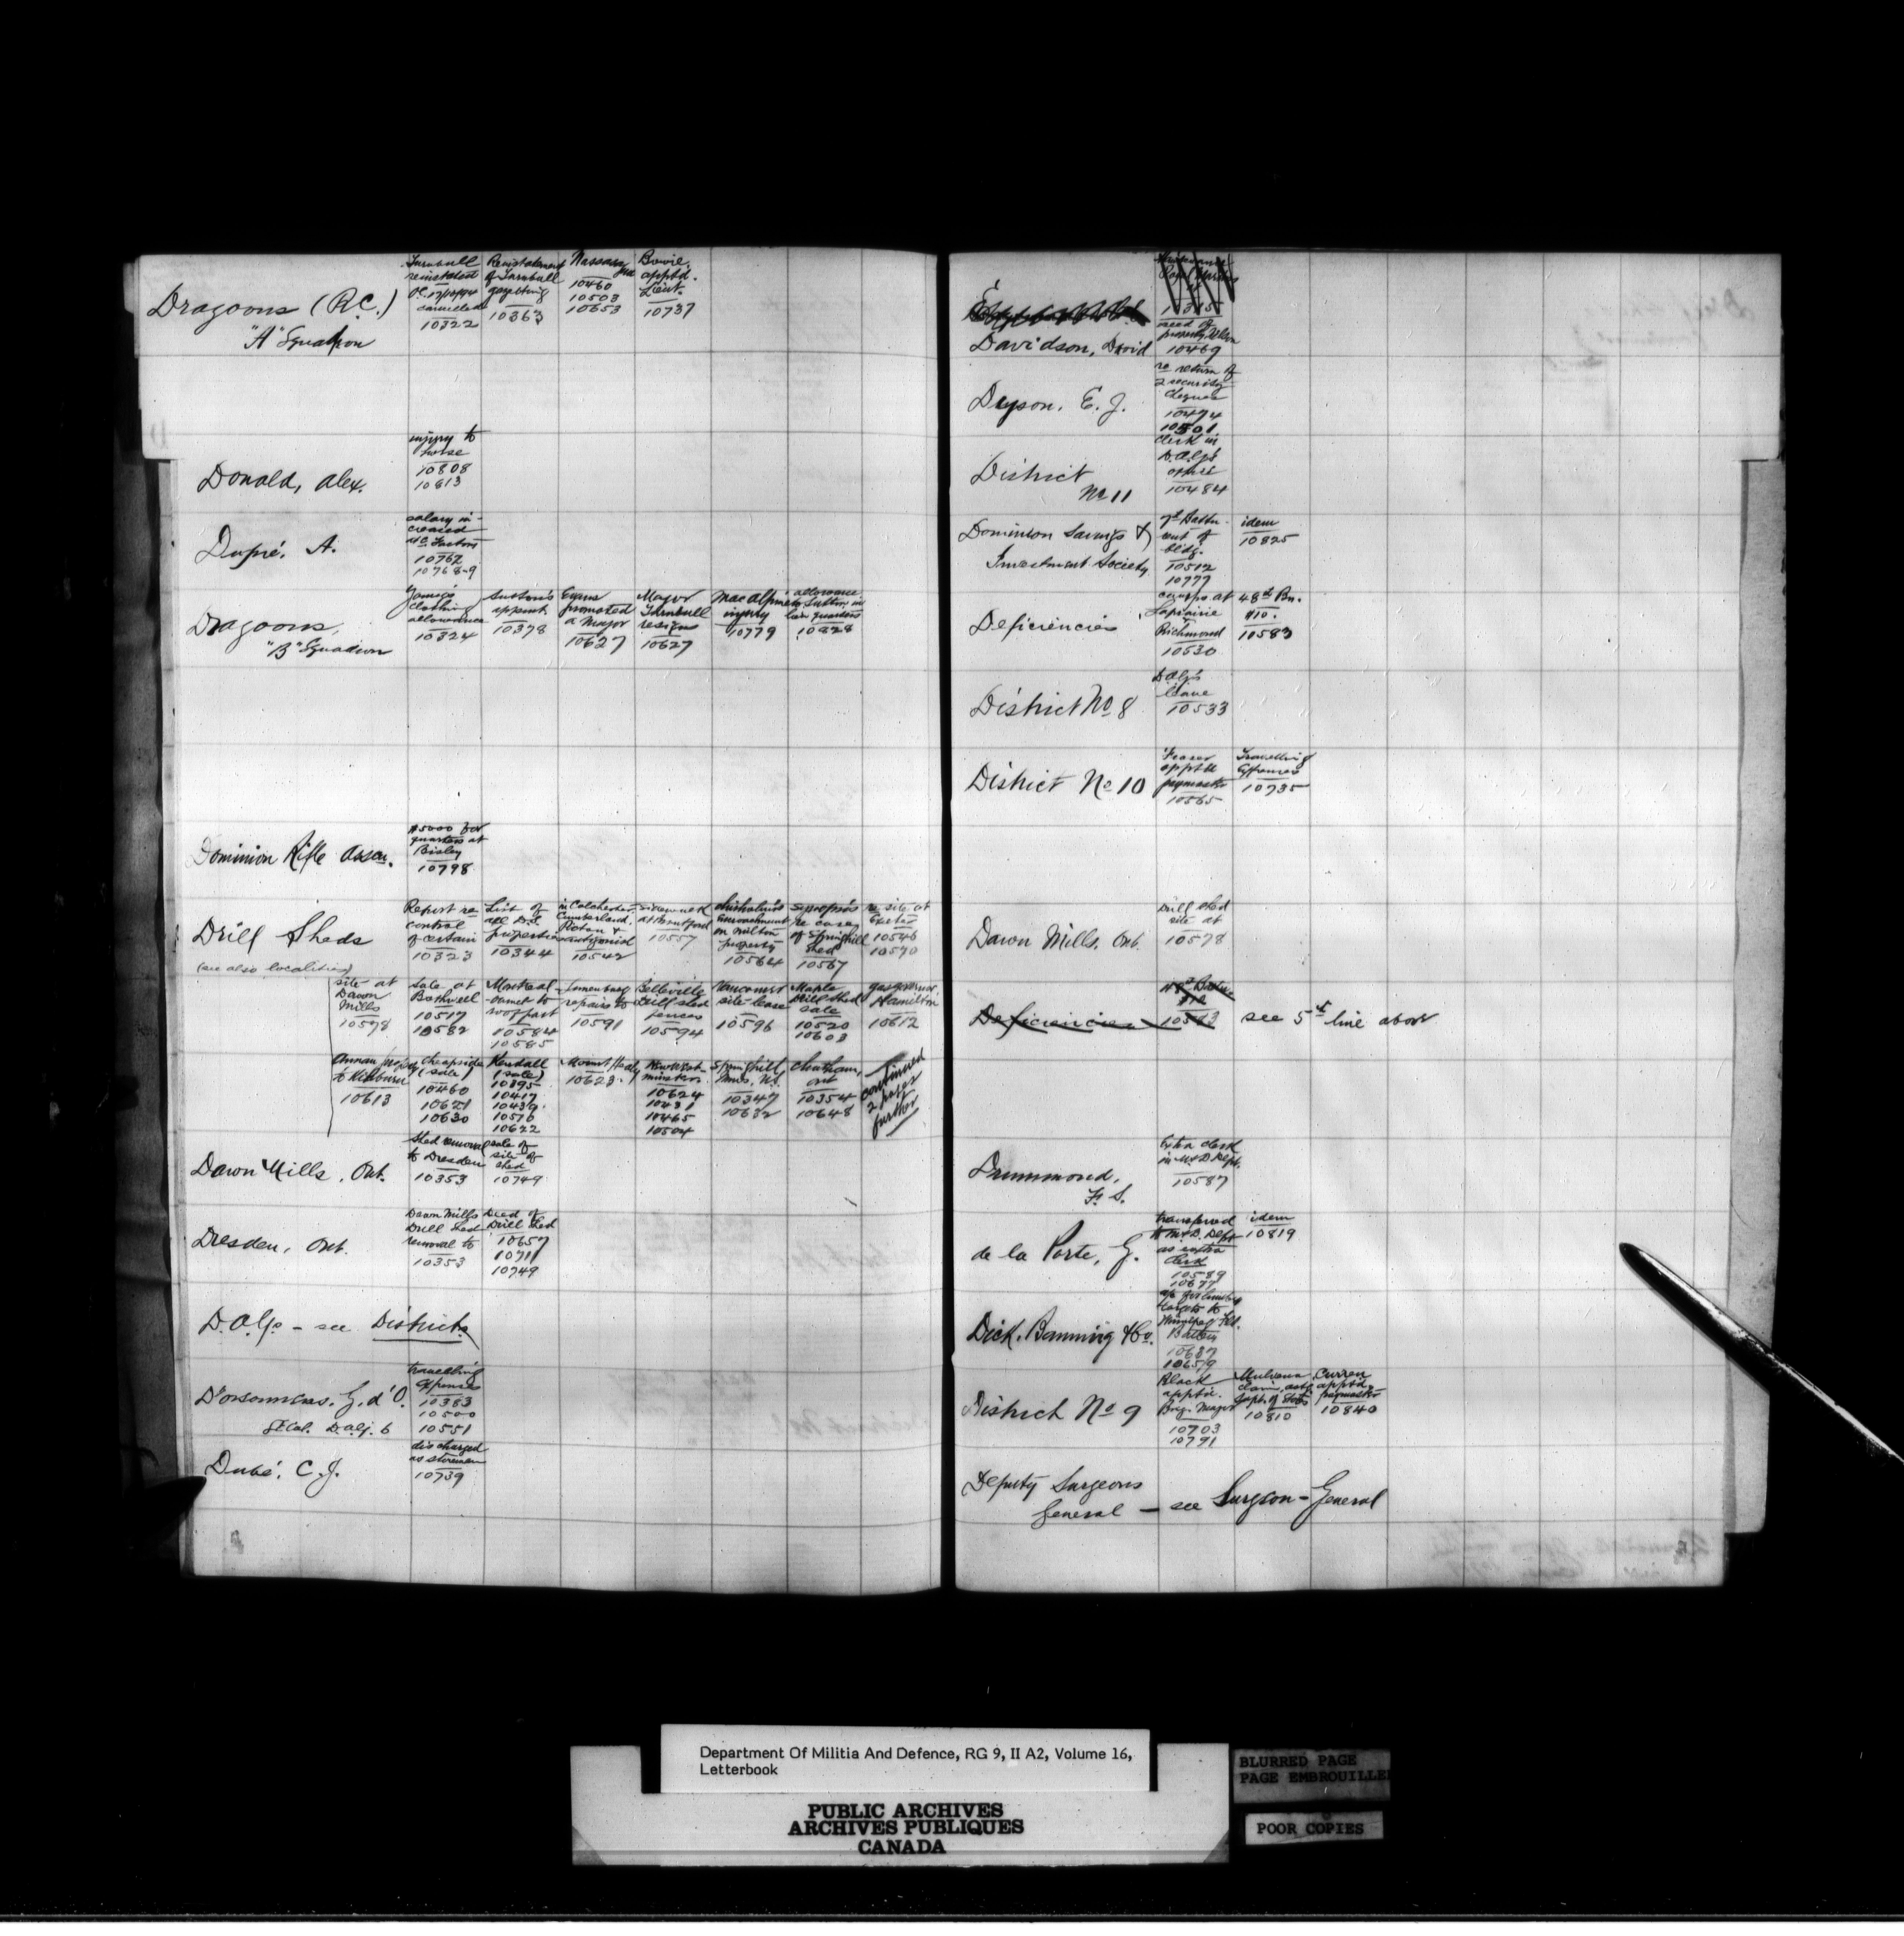 Dragoons (R.C.)
"A" Squadron
Turnbull
reinstated
cancelled
10322
Reinstatement
of Turnbull
gazetting
10363
Nassau
10460
10503
10653
Bowie
apptd.
Lieut.
10737
Donald, Alex.
injury to
horse
10808
10813
Dupré, A.
salary in-
creased
10762
10768-9
Dragoons,
"B" Squadron
clothing
allowance
10324
Sutton's
10378
Evans
promoted
a Major
10627
Major
Turnbull
resigns
10627
MacAlpine's
injury
10779
allowance
Sutton in
lieu quarters
10828
Dominion Rifle Assn.
$5000 for
quarters at
Bisley
10798
Drill Sheds
(see also localities)
Report re
control
of certain
10323
List of
all D.S.
properties
10344
in Colchester,
Cumberland,
Pictou &
Antigonish
10542
sidewalk
at Brantford
10557
Chisholm's
encroachment
on Milton
property
10564
Synopsis
re case
of Springhill
shed
10567
re site at
Exeter
10546
10570
site at
Dawn
Mills
10578
Sale at
Bothwell
10517
10582
Montreal
roof part
10584
10585
Lunenburg
repairs to
10591
Belleville
Drill shed
fences
10594
Vancouver
site-lease
10596
Maple
Drill Shed
sale
10520
10603
Hamilton
10612
to Kilburn
10613
Cheapside
(sale)
10460
10621
10630
Kendall
(sale)
10395
10417
10439
10576
10622
10623
New West-
minster
10624
10431
10465
10504
Springhill
Mines, N.S.
10347
10632
Chatham,
Ont
10354
10648
continued
2 pages
further
Dawn Mills, Ont.
Shed removal
to Dresden
10353
sale of
site of
shed
10749
Dresden, Ont.
Dawn Mills
Drill Shed
removal to
10353
Deed of
Drill Shed
10657
10711
10749
D.A.Gs - see Districts
D'Orsonnens, G. d'O.
Lt Col. D.A.G. 6
travelling
expenses
10383
10500
10551
Dubé, C.J.
discharged
as storeman
10739
10315
Davidson, David
10469
Dyson, E. J.
re return of
2 security
cheques
10474
10501
District
No 11
clerk in
D.A.G's
office
10484
Dominion Savings &
Investment Society
7th Battn.
rent of
bldg.
10512
10777
idem
10825
Deficiencies
camps at
Laprairie
&
Richmond
10530
48th Bn.
$10.
10583
District No 8
D.A.G's
leave
10533
District No 10
apptd
paymaster
10565
Travelling
Expenses
10735
Dawn Mills, Ont.
Drill shed
site at
10578
Deficiencies
10583
see 5th line above
Drummond,
F. S.
Extra clerk
in M. & D. Dept.
10587
de la Porte, G.
transferred
to M. & D. Dept
as extra
clerk
10589
10677
idem
10819
Dick, Banning & Co.
targets to
Winnipeg Fld.
Battery
10637
10659
District No 9
Black
apptd.
Brig. Major
10703
10791
10810
Curren
apptd.
paymaster
10840
Deputy Surgeons
General - see Surgeon-General
Department Of Militia And Defence, RG 9, II A2, Volume 16,
Letterbook
PUBLIC ARCHIVES
ARCHIVES PUBLIQUES
CANADA
BLURRED PAGE
PAGE EMBROUILLEE
POOR COPIES